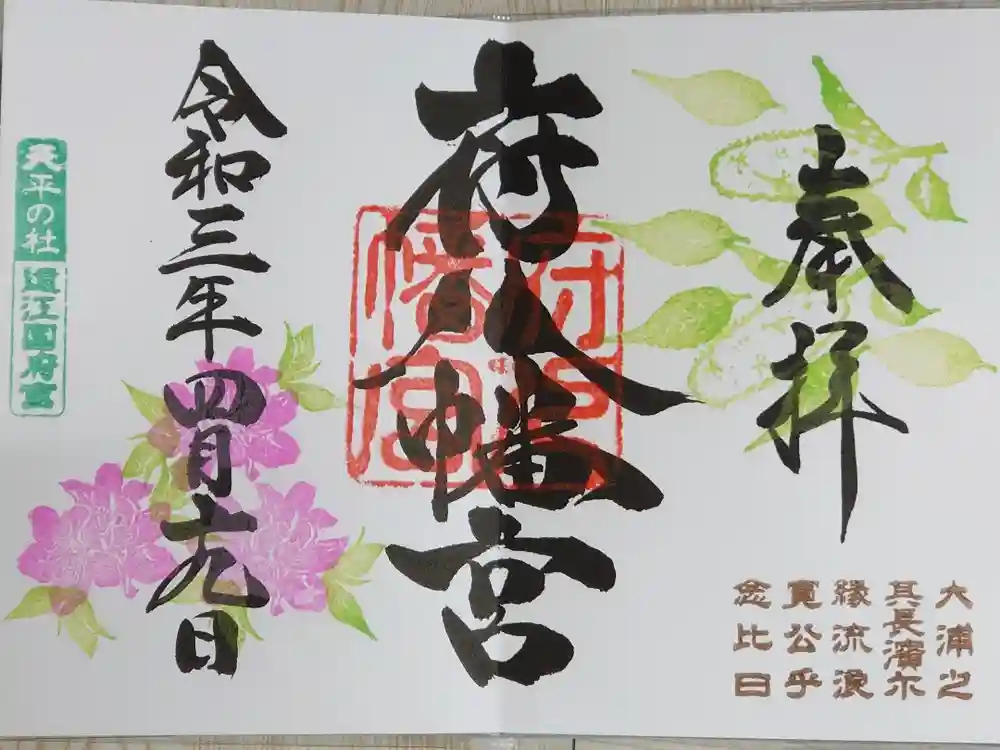 奉拝
大浦之
其長濱尓
縁流浪
寛公乎
念比日
府八幡宮
府八
幡宮
令和三年四月十九日
天平の社
遠江国府宮